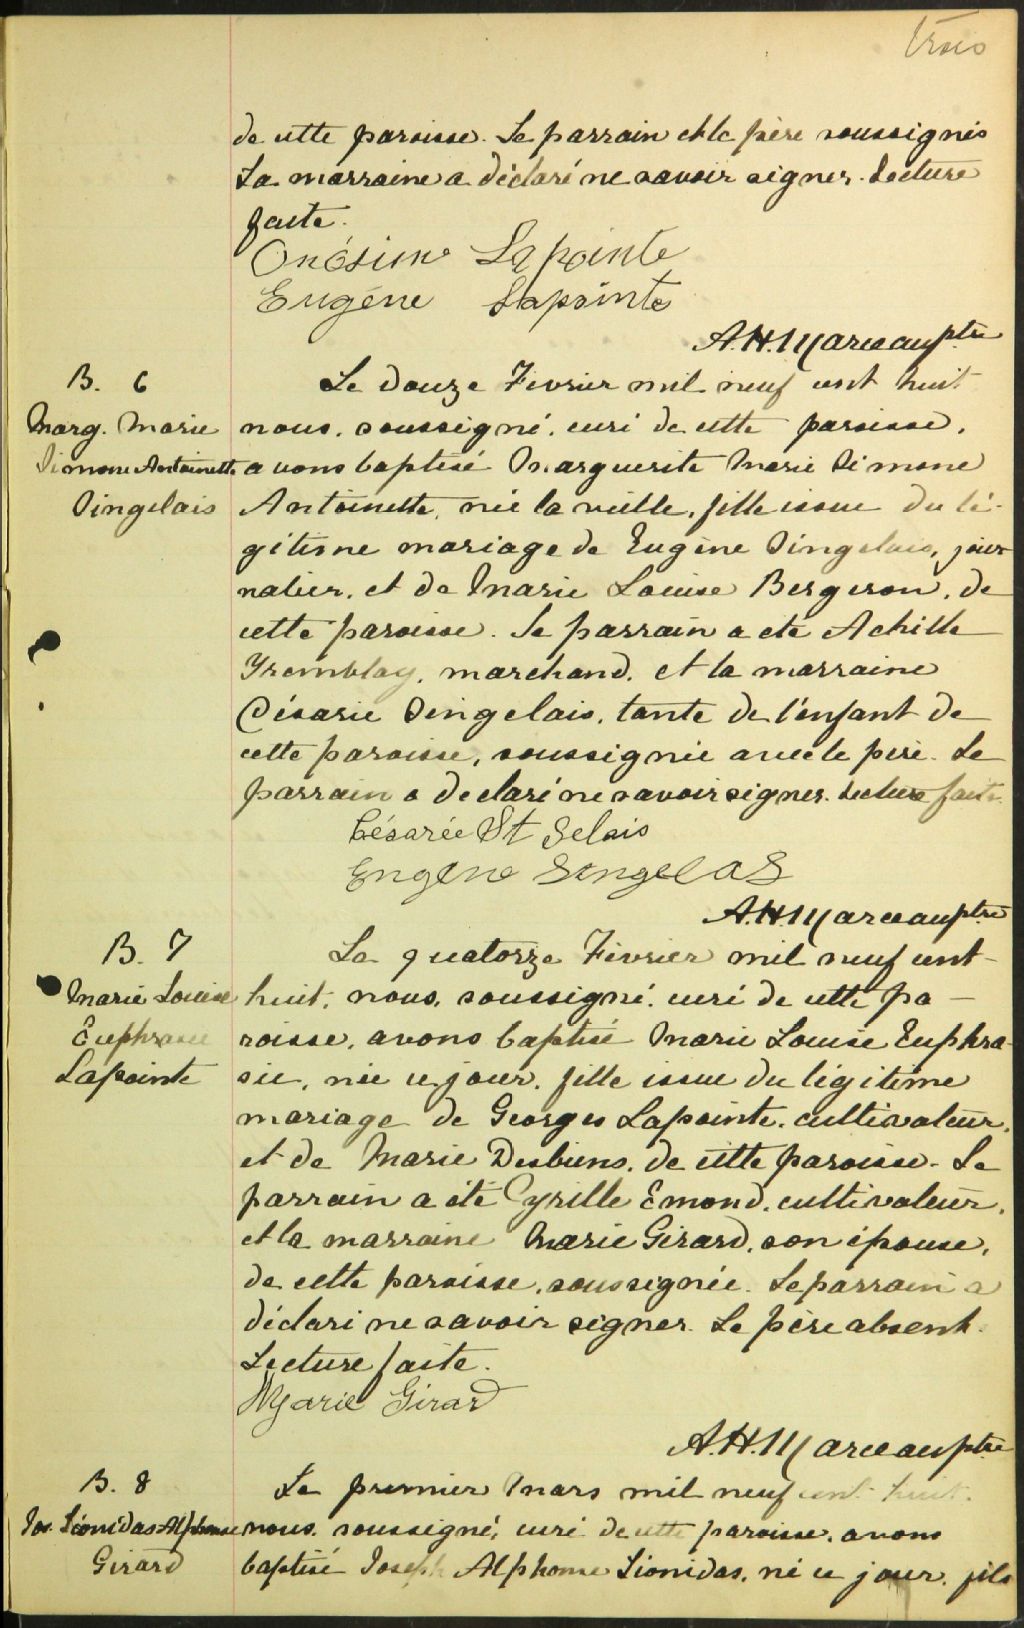 trois
de cette paroisse. Le parrain et le père soussignés
La marraine a déclaré ne savoir signer. Lecture
faite.
Onésime Lapointe
Eugène Lapointe
A.H. Marceau ptre
B. 6
Marg. Marie
Simone Antoinette
Singelais
Le douze Fevrier mil neuf cent huit
nous, soussigné, curé de cette paroisse,
avons baptisé Marguerite Marie Simone
Antoinette, née la veille, fille issue du lé-
gitime mariage de Eugène Singelais, jour
nalier, et de Marie Louise Bergeron, de
cette paroisse. Le parrain a ete Achille
Tremblay, marchand, et la marraine
Césarie Singelais, tante de l'enfant de
cette paroisse, soussignée avec le père. Le
parrain a declaré ne savoir signer. Lecture faite.
Césarée St Gelais
Eugène Sengelas
A.H. Marceau ptre
B. 7
Marie Louise
Euphrasie
Lapointe
Le quatorze Février mil neuf cent-
huit, nous, soussigné, curé de cette pa-
roisse, avons baptisé Marie Louise Euphra-
sie, née ce jour, fille issue du légitime
mariage de Georges Lapointe, cultivateur,
et de Marie Desbiens, de cette paroisse. Le
parrain a été Cyrille Emond, cultivateur,
et la marraine Marie Girard, son épouse,
de cette paroisse, soussignée. Le parrain a
déclaré ne savoir signer. Le père absent.
Lecture faite.
Marie Girard
A.H. Marceau ptre
B. 8
Jos. Léonidas Alphonse
Girard
Le premier Mars mil neuf cent huit.
nous, soussigné, curé de cette paroisse, avons
baptisé Joseph Alphonse Léonidas, né ce jour, fils